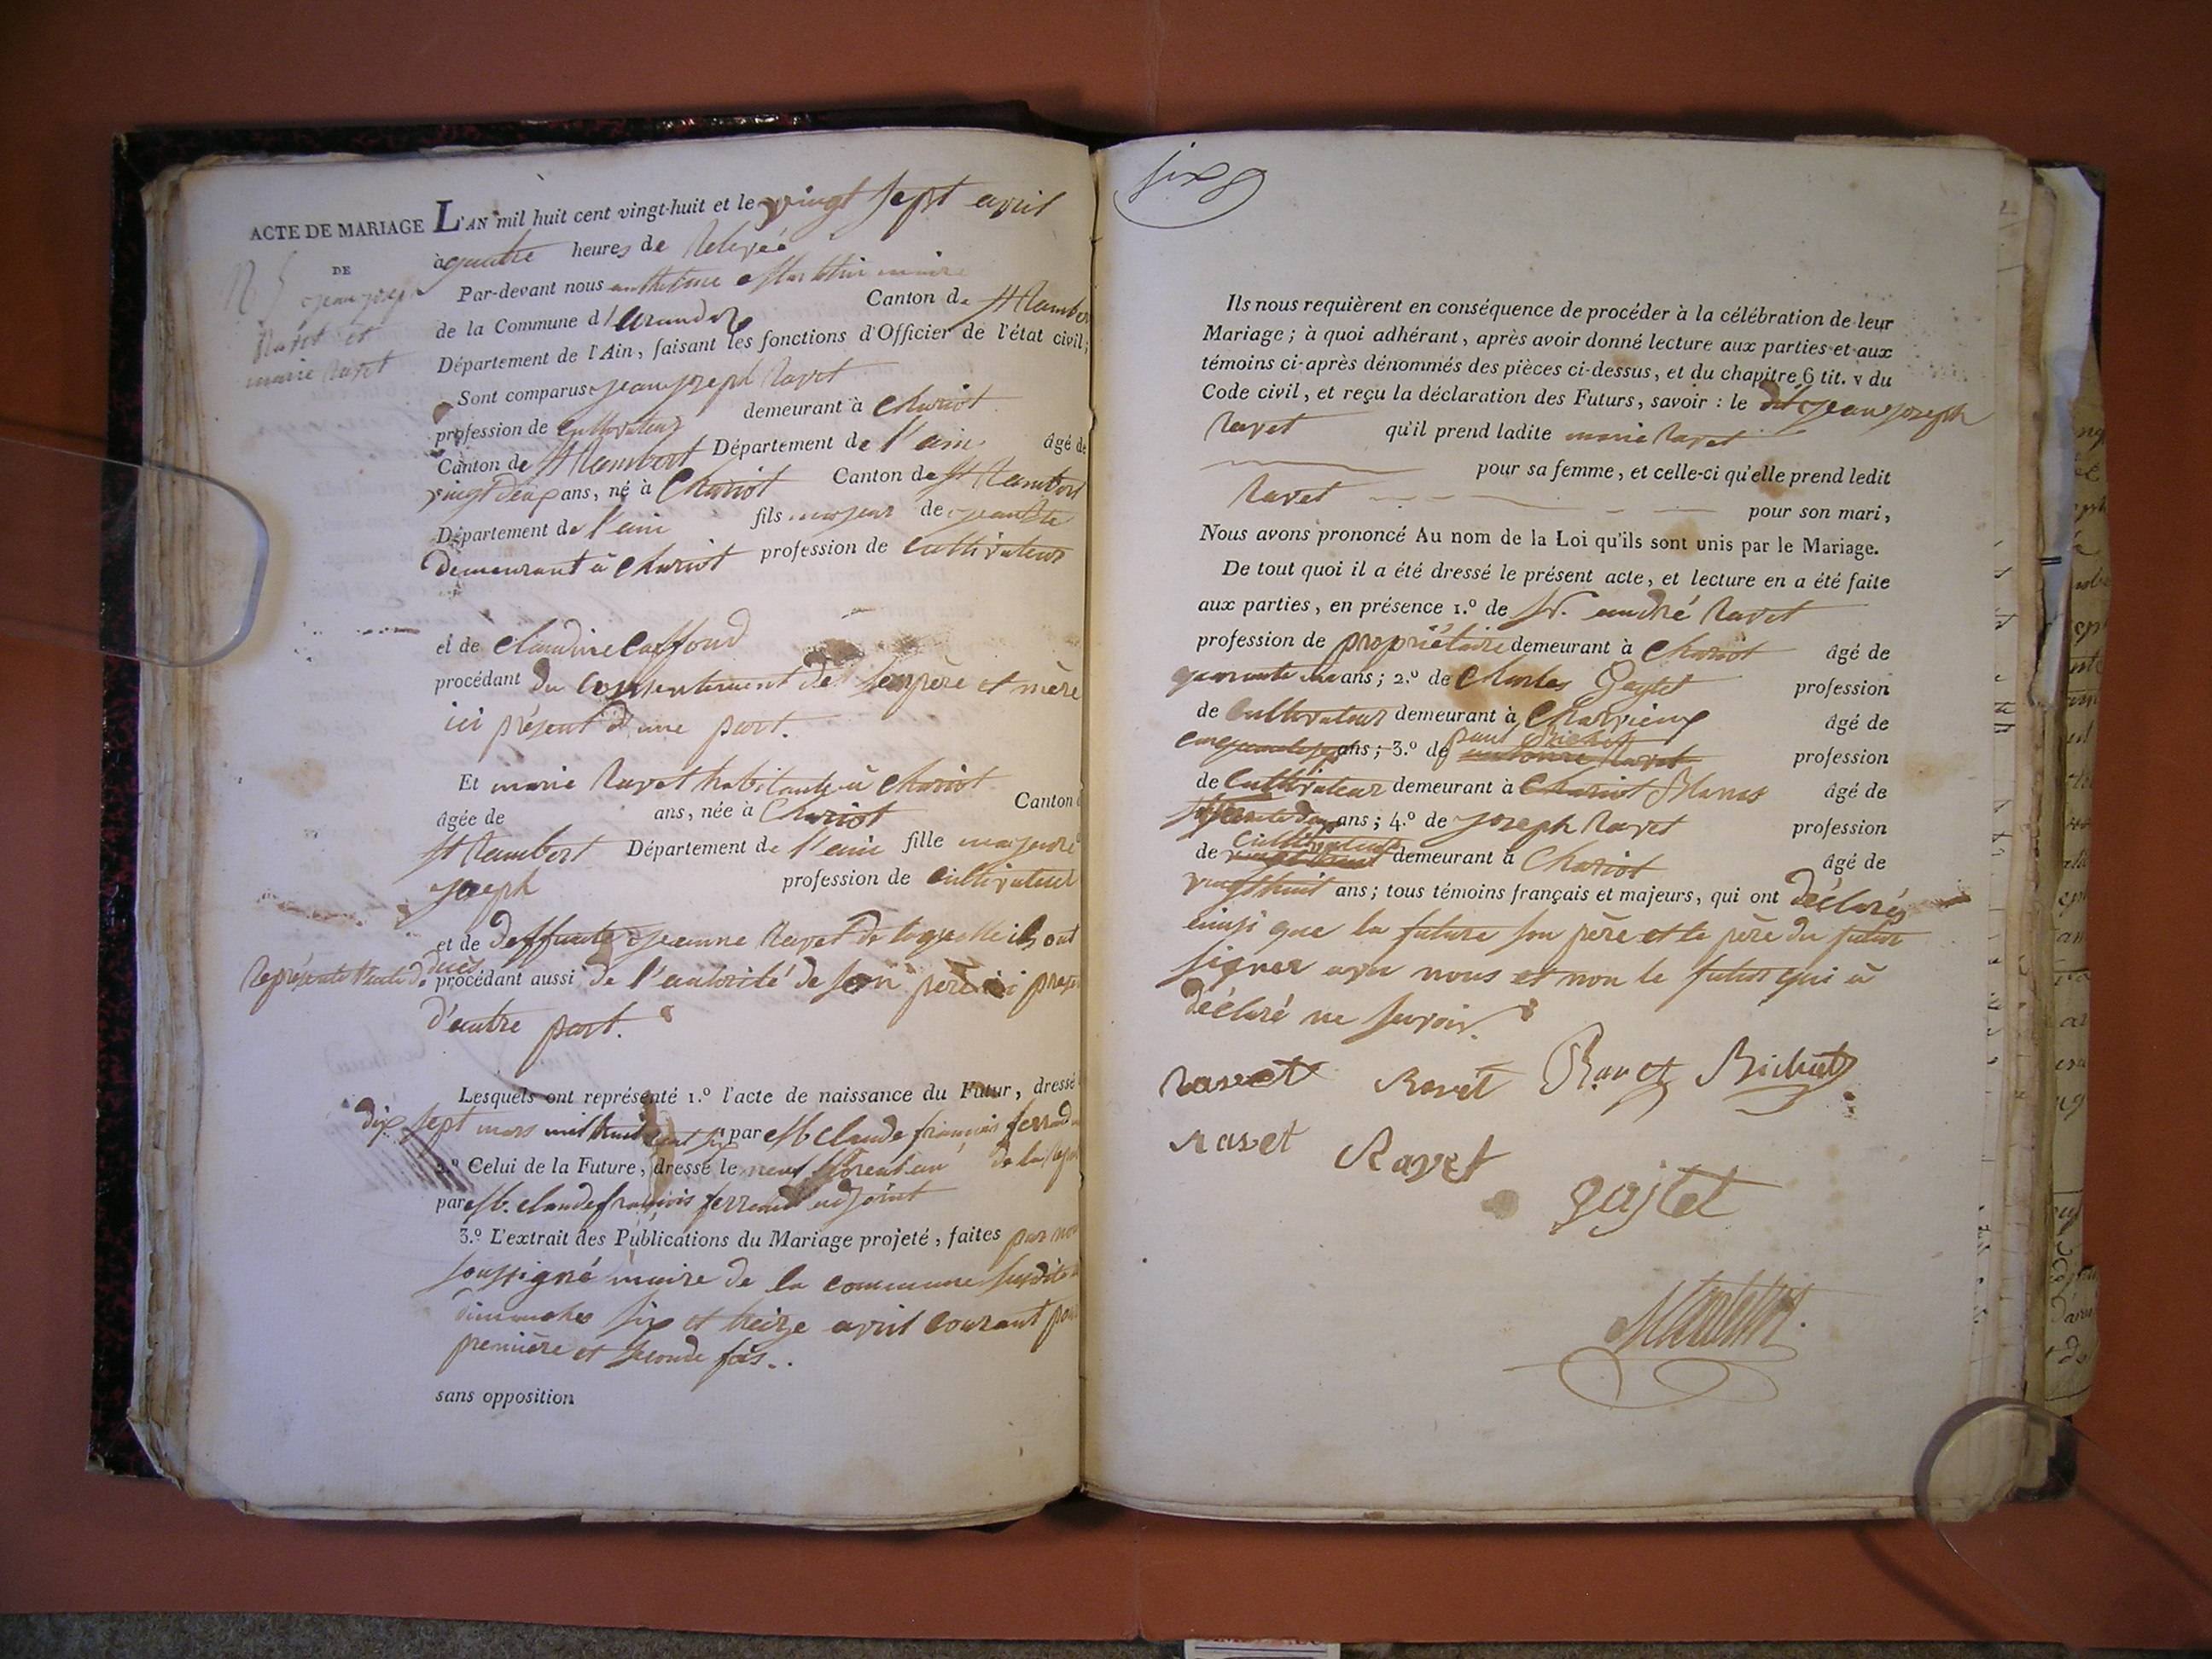 ACTE DE MARIAGE
DE
N 5 jean joseph
Ravet et
marie Ravet
L'AN mil huit cent vingt-huit et le vingt sept avril
à quatre heures de Relevéé
Par-devant nous anthelme Martin maire
de la Commune d'arandas Canton de St Rambert
Département de l'Ain, faisant les fonctions d'Officier de l'état civil;
Sont comparus jean joseph Ravet
profession de Cultivateur demeurant à Chariot
Canton de St Rambert Département de l'ain âgé de
vingt deux ans, né à Chariot Canton de St Rambert
Département de l'ain fils majeur de jean Bte
demeurant à Chariot profession de Cultivateur
et de Claudine
procédant du Consentement de ses père et mère
ici présent d'une part.
Et marie Ravet habitante à Chariot
âgée de ans, née à Chariot Canton
St Rambert Département de l'ain fille majeure
joseph profession de Cultivateur
et de deffunte jeanne Ravet de laquelle ils ont
Représenté l'acte de décès
procédant aussi de l'autorité de son père ici present
d'autre part.
Lesquels ont représenté 1.º l'acte de naissance du Futur, dressé
dix sept mars mil huit cent six par M. Claude françois ferrand
2.º Celui de la Future, dressé le neuf an de la
par M. Claude françois ferrand adjoint
3.º L'extrait des Publications du Mariage projeté, faites par nous
soussigné maire de la commune susdite
dimanches six et treize avril courant pour
première et seconde fois.
sans opposition
six
Ils nous requièrent en conséquence de procéder à la célébration de leur
Mariage; à quoi adhérant, après avoir donné lecture aux parties et aux
témoins ci-après dénommés des pièces ci-dessus, et du chapitre 6 tit. v du
Code civil, et reçu la déclaration des Futurs, savoir : le dit jean joseph
Ravet qu'il prend ladite marie Ravet
pour sa femme, et celle-ci qu'elle prend ledit
Ravet pour son mari,
Nous avons prononcé Au nom de la Loi qu'ils sont unis par le Mariage.
De tout quoi il a été dressé le présent acte, et lecture en a été faite
aux parties, en présence 1.º de Sr. andré Ravet
profession de propriétaire demeurant à Chariot âgé de
quarante ans; 2.º de Charles Gaytet profession
de Cultivateur demeurant à Charvieux âgé de
cinquante sept ans; 3.º de paul Bichet profession
de Cultivateur demeurant à Chariot Blanas âgé de
ans; 4.º de joseph Ravet profession
de Cultivateur demeurant à Chariot âgé de
vingt huit ans; tous témoins français et majeurs, qui ont déclarés
ainsi que la future son père et le père du futur
signer avec nous et non le futur qui à
déclaré ne savoir.
ravet Ravet Ravet Bichet
ravet Ravet
gaytet
Martin